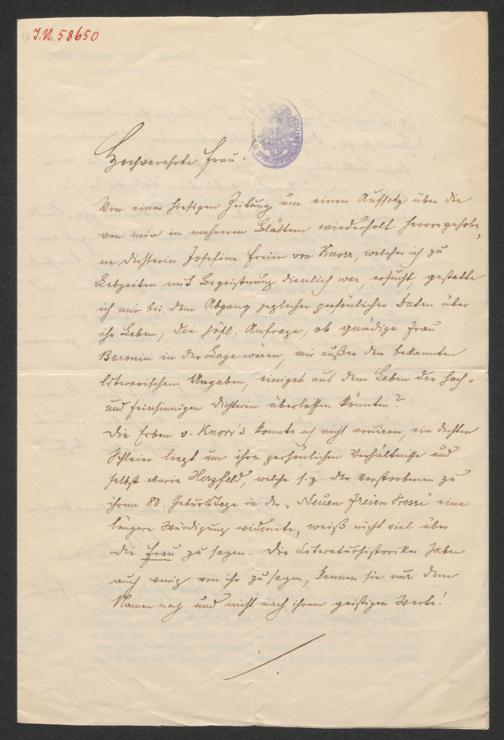 J.N. 58650
Hochverehrte Frau!
Von einer hiesigen Zeitung um einen Aufsatz über die
von mir in mehreren Blättern wiederholt hervorgehobe-
ne Dichterin Josefine Freiin von Knorr, welcher ich zu
Lebzeiten mit Begeisterung dienlich war, ersucht, gestatte
ich mir bei dem Abgang jeglicher persönlicher Daten über
ihr Leben, die höfl. Anfrage, ob gnädige Frau
Baronin in der Lage wären, mir außer den bekannten
literarischen Angaben, einiges aus dem Leben der hoch-
und feinsinnigen Dichterin überlassen könnten?
Die Erben v. Knorr's konnte ich nicht eruiren, ein dichter
Schleier liegt um ihre persönlichen Verhältnisse und
selbst Marie Herzfeld, welche s. Z. der Verstorbenen zu
ihrem 80. Geburtstage in der „Neuen Freien Presse" eine
längere Würdigung widmete, weiß nicht viel über
die Frau zu sagen. Die Literaturhistoriker haben
auch wenig von ihr zu sagen, kennen sie nur dem
Namen nach und nicht nach ihrem geistigen Werte!